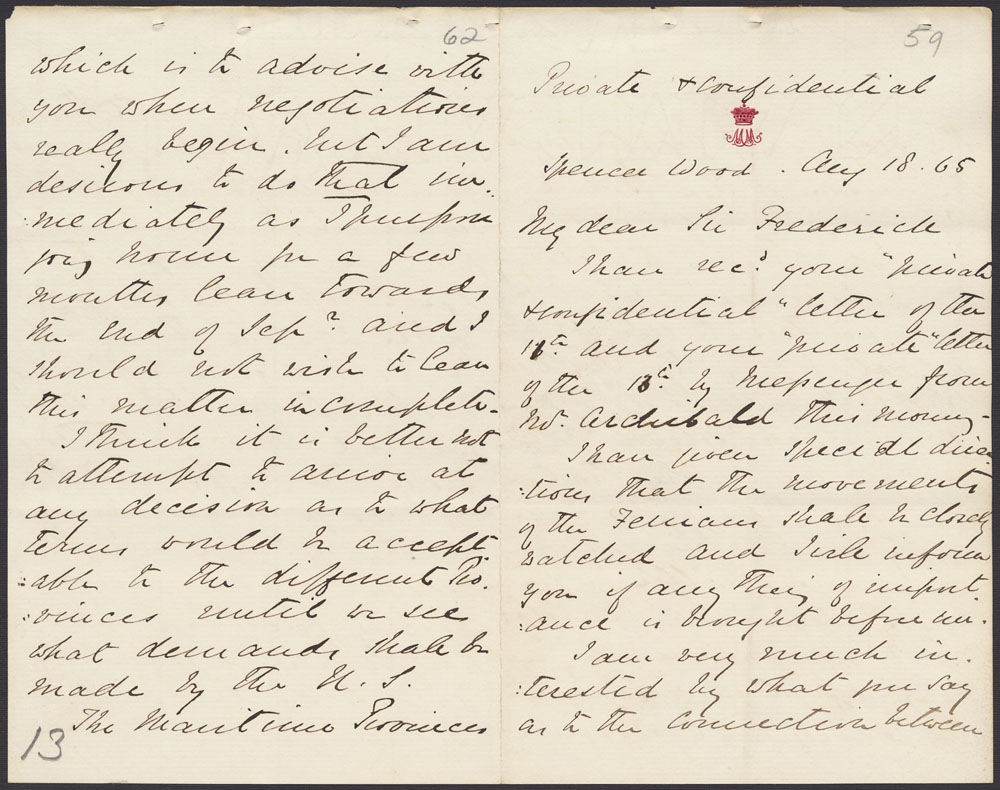 62
which is to advise with
you when negotiations
really begin. but I am
desirous to do that im-
:mediately as I purpose
going home for a few
months leave towards
the end of Sepr. and I
should not wish to leave
this matter incomplete.
I think it is better not
to attempt to arrive at
any decision as to what
terms would be accept
:able to the different Pro.
:vinces until we see
what demands shall be
made by the U. S.
The Maritime Provinces
13
59
Private & confidential
Spencer Wood. Aug 18. 65
My dear Sir Frederick
I have recd. your "private
& confidential" letter of the
and your "private" letter
of the by Messenger from
Mr. Archibald this morng.
I have given special direc
:tions that the movements
of the Fenians shall be closely
watched and I will inform
you if any thing of import.
:ance is brought before me.
I am very much in.
:terested by what you say
as to the connection between